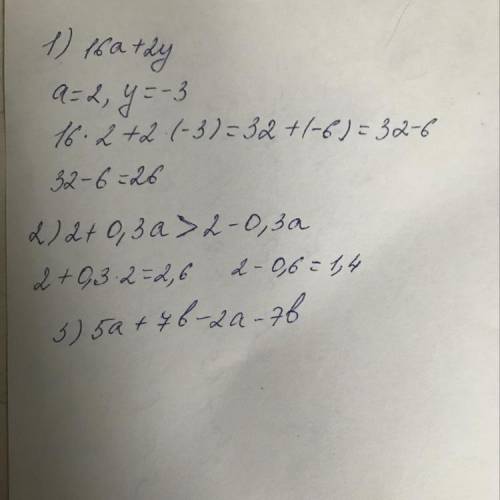 1) 16a+2y
a=2, y=-3
16·2+2·(-3)=32+(-6)=32-6
32-6=26
2) 2+0,3a>2-0,3a
2+0,3·2=2,6 2-0,6=1,4
3) 5a+7b-2a-7b